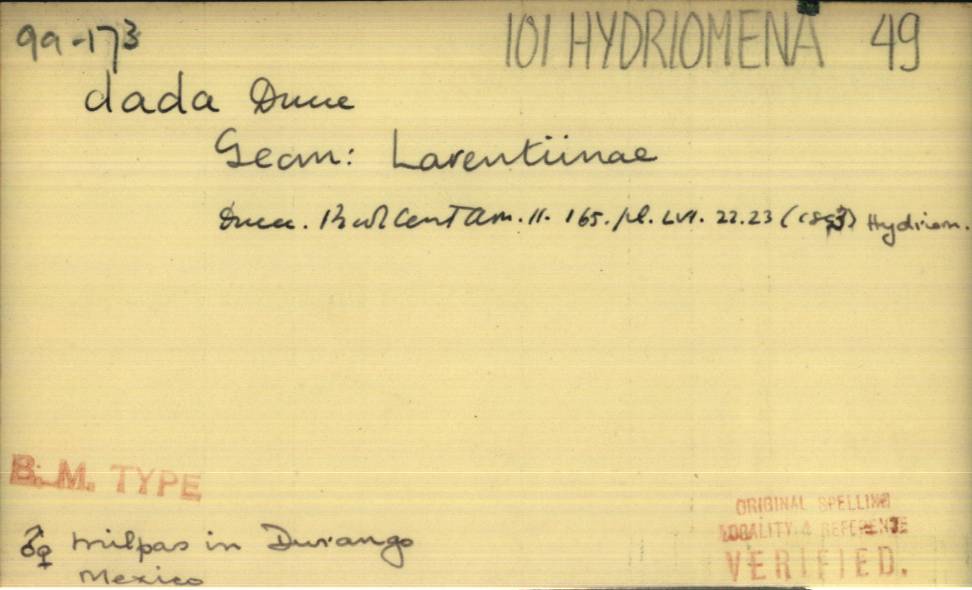 99-173 101 HYDRIOMENA 49
dada Druce
Geom: Larentiinae
Druce. Biol Cent Am. II. 165. pl. LVI. 22.23 (1893) Hydriom.
B.M. TYPE
♂♀ Milpas in Durango
Mexico
ORIGINAL SPELLING
LOCALITY & REFERENCE
VERIFIED.